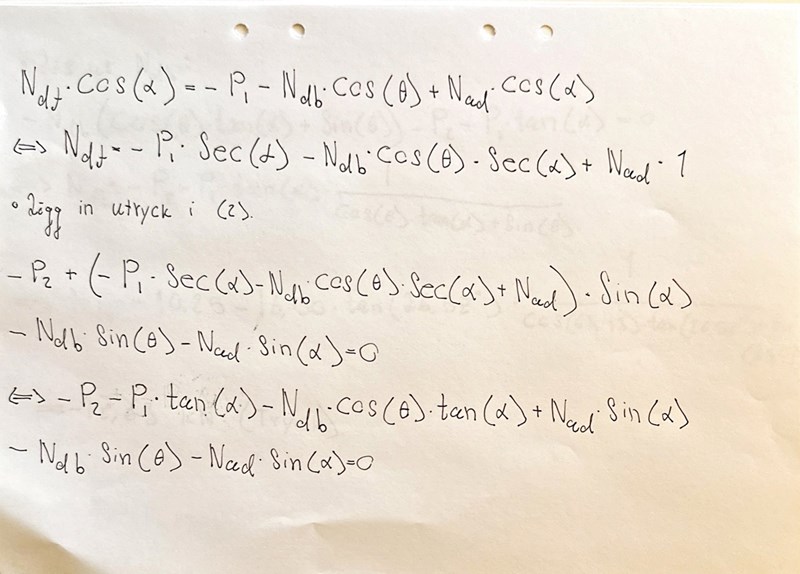 N_df · Cos(α) = - P_1 - N_db · Cos(θ) + N_ad · Cos(α)
⇔ N_df = - P_1 · Sec(α) - N_db · Cos(θ) · Sec(α) + N_ad · 1
• Lägg in utryck i (2).
- P_2 + (- P_1 · Sec(α) - N_db · Cos(θ) · Sec(α) + N_ad) · Sin(α)
- N_db · Sin(θ) - N_ad · Sin(α) = 0
⇔ - P_2 - P_1 · tan(α) - N_db · Cos(θ) · tan(α) + N_ad · Sin(α)
- N_db · Sin(θ) - N_ad · Sin(α) = 0